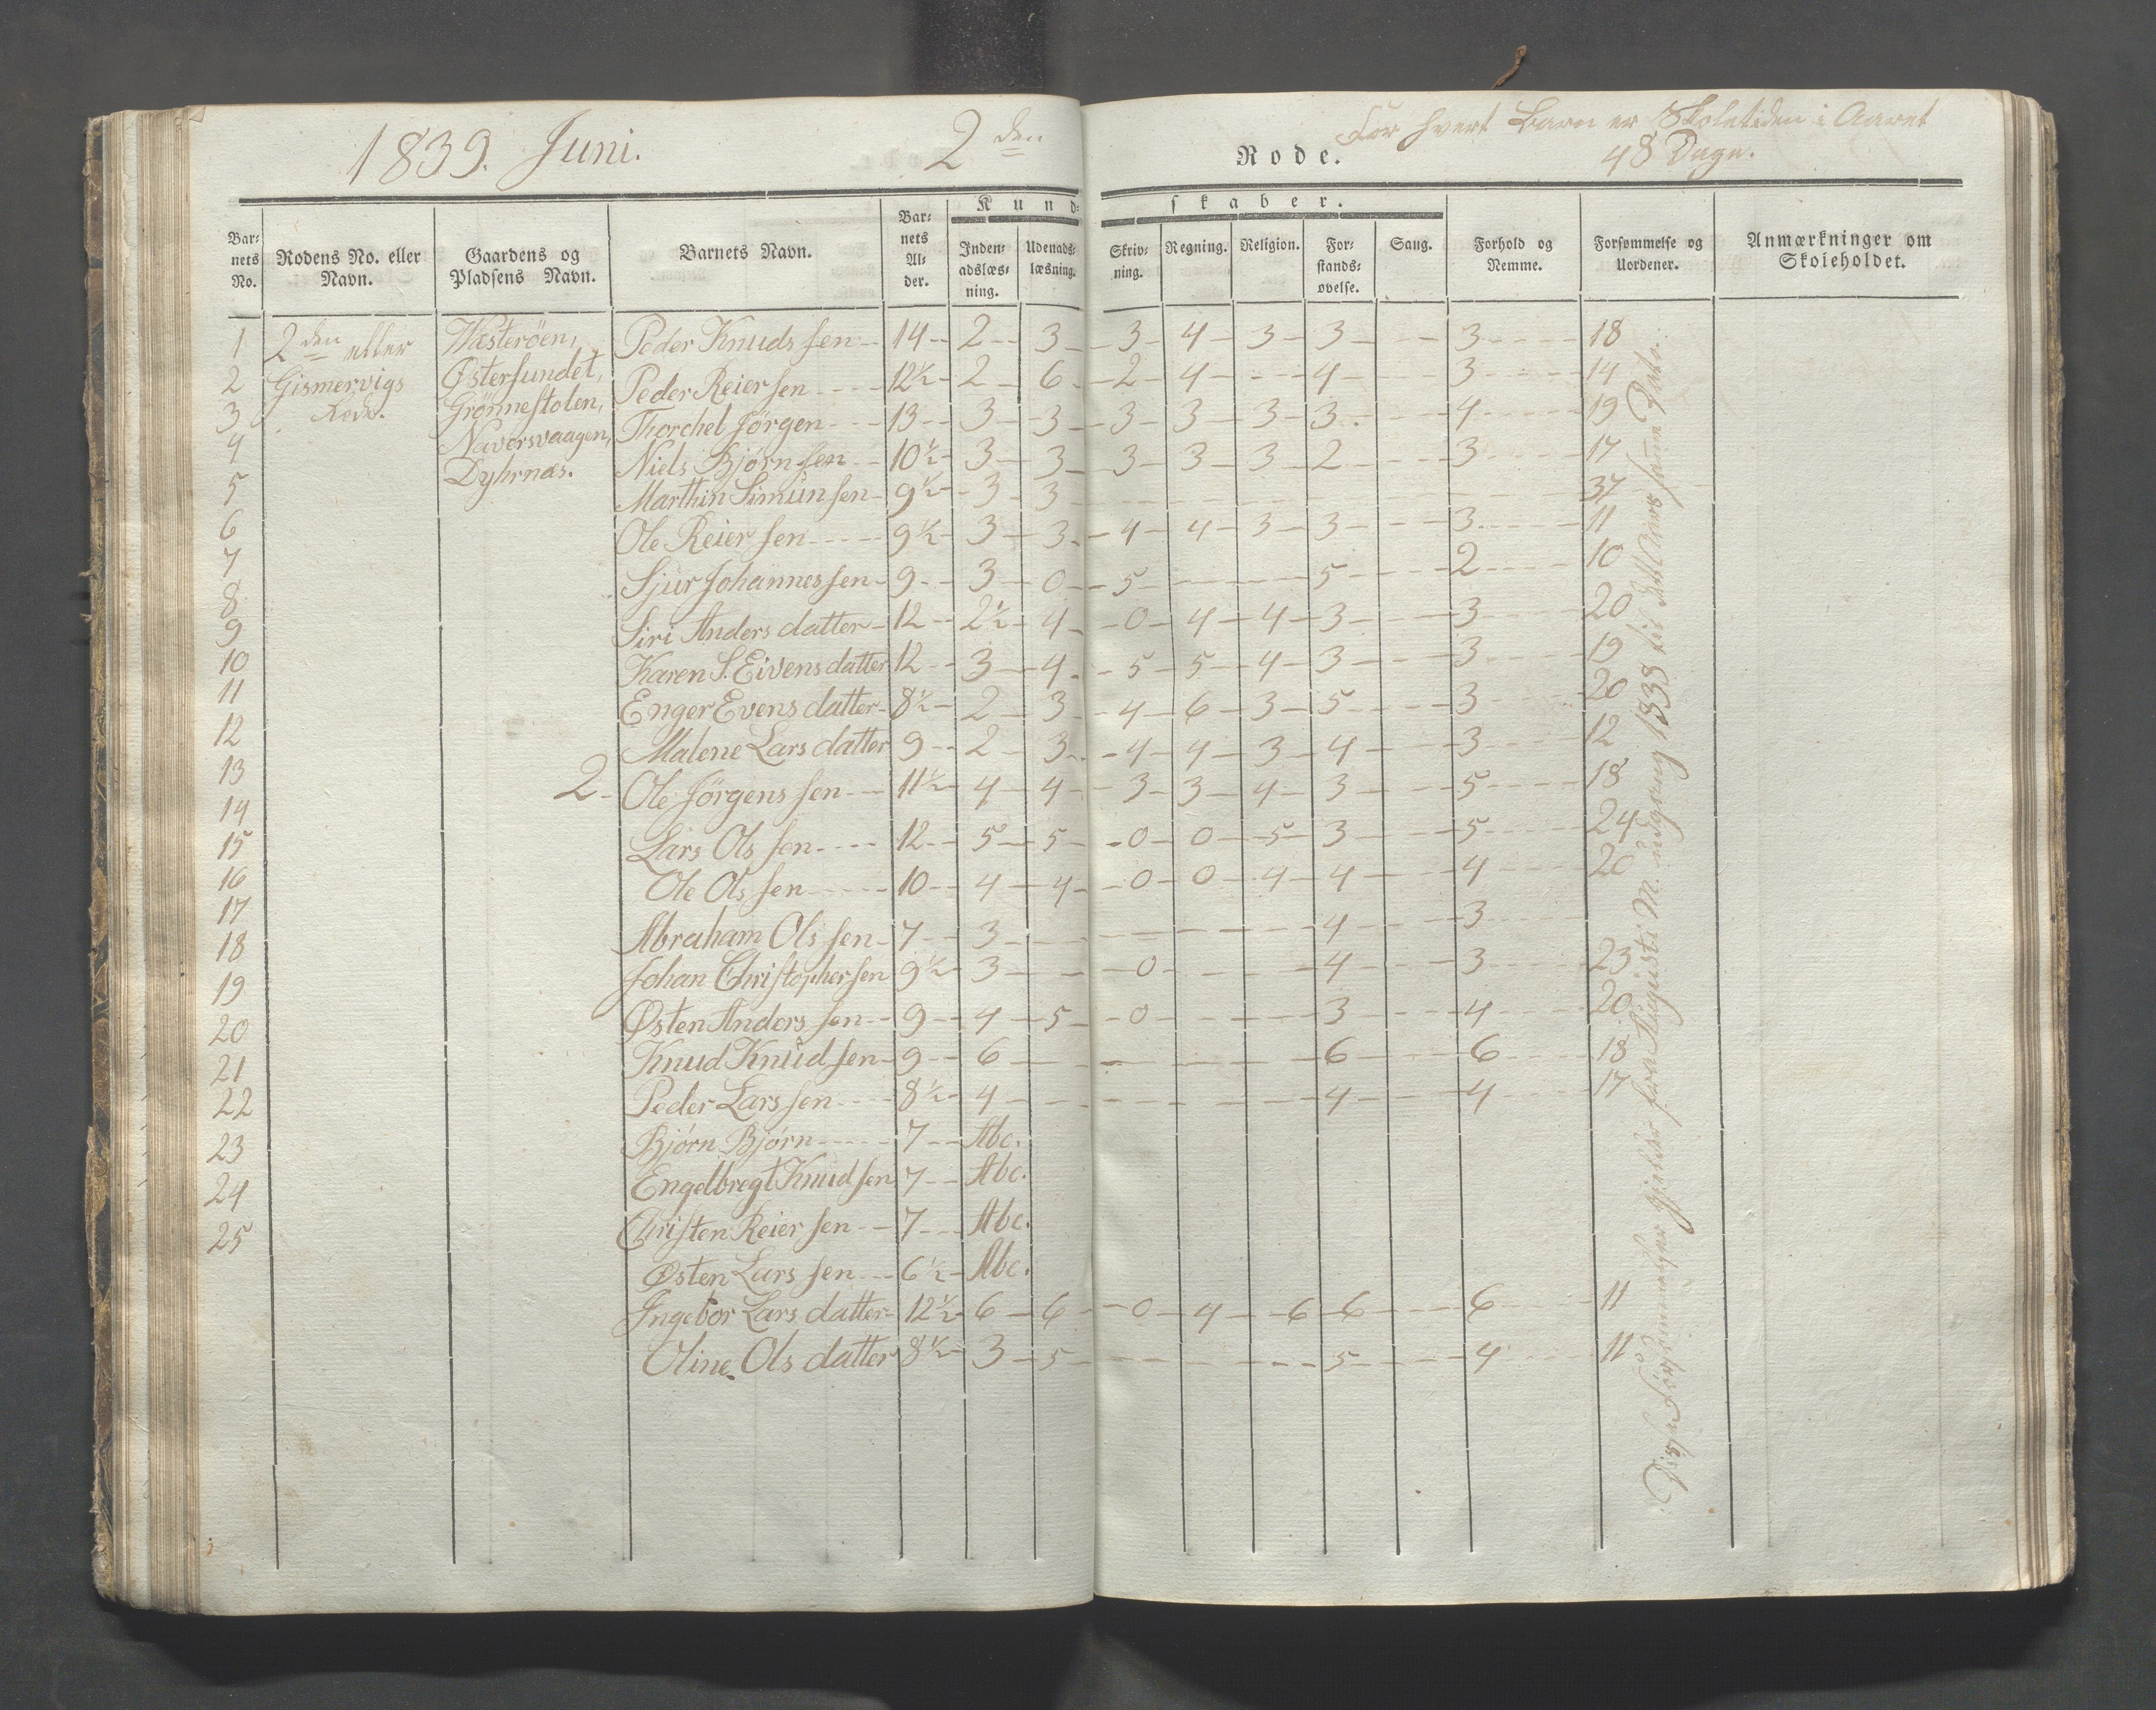 1839. Juni. 2den Rode. For hvert Barn er Skoletiden i Aaret
48 Dage.
Kund- skaber.
Bar- nets No. | Rodens No. eller Navn. | Gaardens og Pladsens Navn. | Barnets Navn. | Bar- nets Al- der. | Inden- adslæs- ning. | Udenads- læsning. | Skriv- ning. | Regning. | Religion. | For- stands- øvelse. | Sang. | Forhold og Nemme. | Forsømmelse og Uordener. | Anmærkninger om Skoleholdet.
1 2den eller Wæsteröen, Peder Knudssen 14 2 3 3 4 3 3 3 18
2 Gismervigs Østersundet, Peder Reiersen 12½ 2 6 2 4 4 3 14
3 Rode. Grönnestolen, Thorchel Jörgen 13 3 3 3 3 3 3 4 19
4 Naversvaagen, Niels Bjørnsen 10½ 3 3 3 3 3 2 3 17
5 Dyhrnæs. Marthin Simunsen 9½ 3 3 37
6 Ole Reiersen 9½ 3 3 4 4 3 3 3 11
7 Sjur Johannessen 9 3 0 5 5 2 10
8 Siri Andersdatter 12 2½ 4 0 4 4 3 3 20
9 Karen S. Eivensdatter 12 3 4 5 5 4 3 3 19
10 Enger Evensdatter 8½ 2 3 4 6 3 5 3 20
11 Malene Larsdatter 9 2 3 4 4 3 4 3 12
12 2 Ole Jörgenssen 11½ 4 4 3 3 4 3 5 18
13 Lars Olssen 12 5 5 0 0 5 3 5 24
14 Ole Olssen 10 4 4 0 0 4 4 4 20
15 Abraham Olssen 7 3 4 3
16 Johan Christophersen 9½ 3 0 4 3 23
17 Østen Anderssen 9 4 5 0 3 4 20
18 Knud Knudsen 9 6 6 6 18
19 Peder Larssen 8½ 4 4 4 17
20 Bjórn Bjórn 7 Abc.
21 Engelbregt Knudsen 7 Abc.
22 Christen Reiersen 7 Abc.
23 Østen Larssen 6½ Abc.
24 Ingebor Larsdatter 12½ 6 6 0 4 6 6 6 11
25 Oline Olsdatter 8½ 3 5 5 4 11
Disse Forsømmelser gjelder fra Augusti M. udgang 1838 til dette Aars samme Dato.